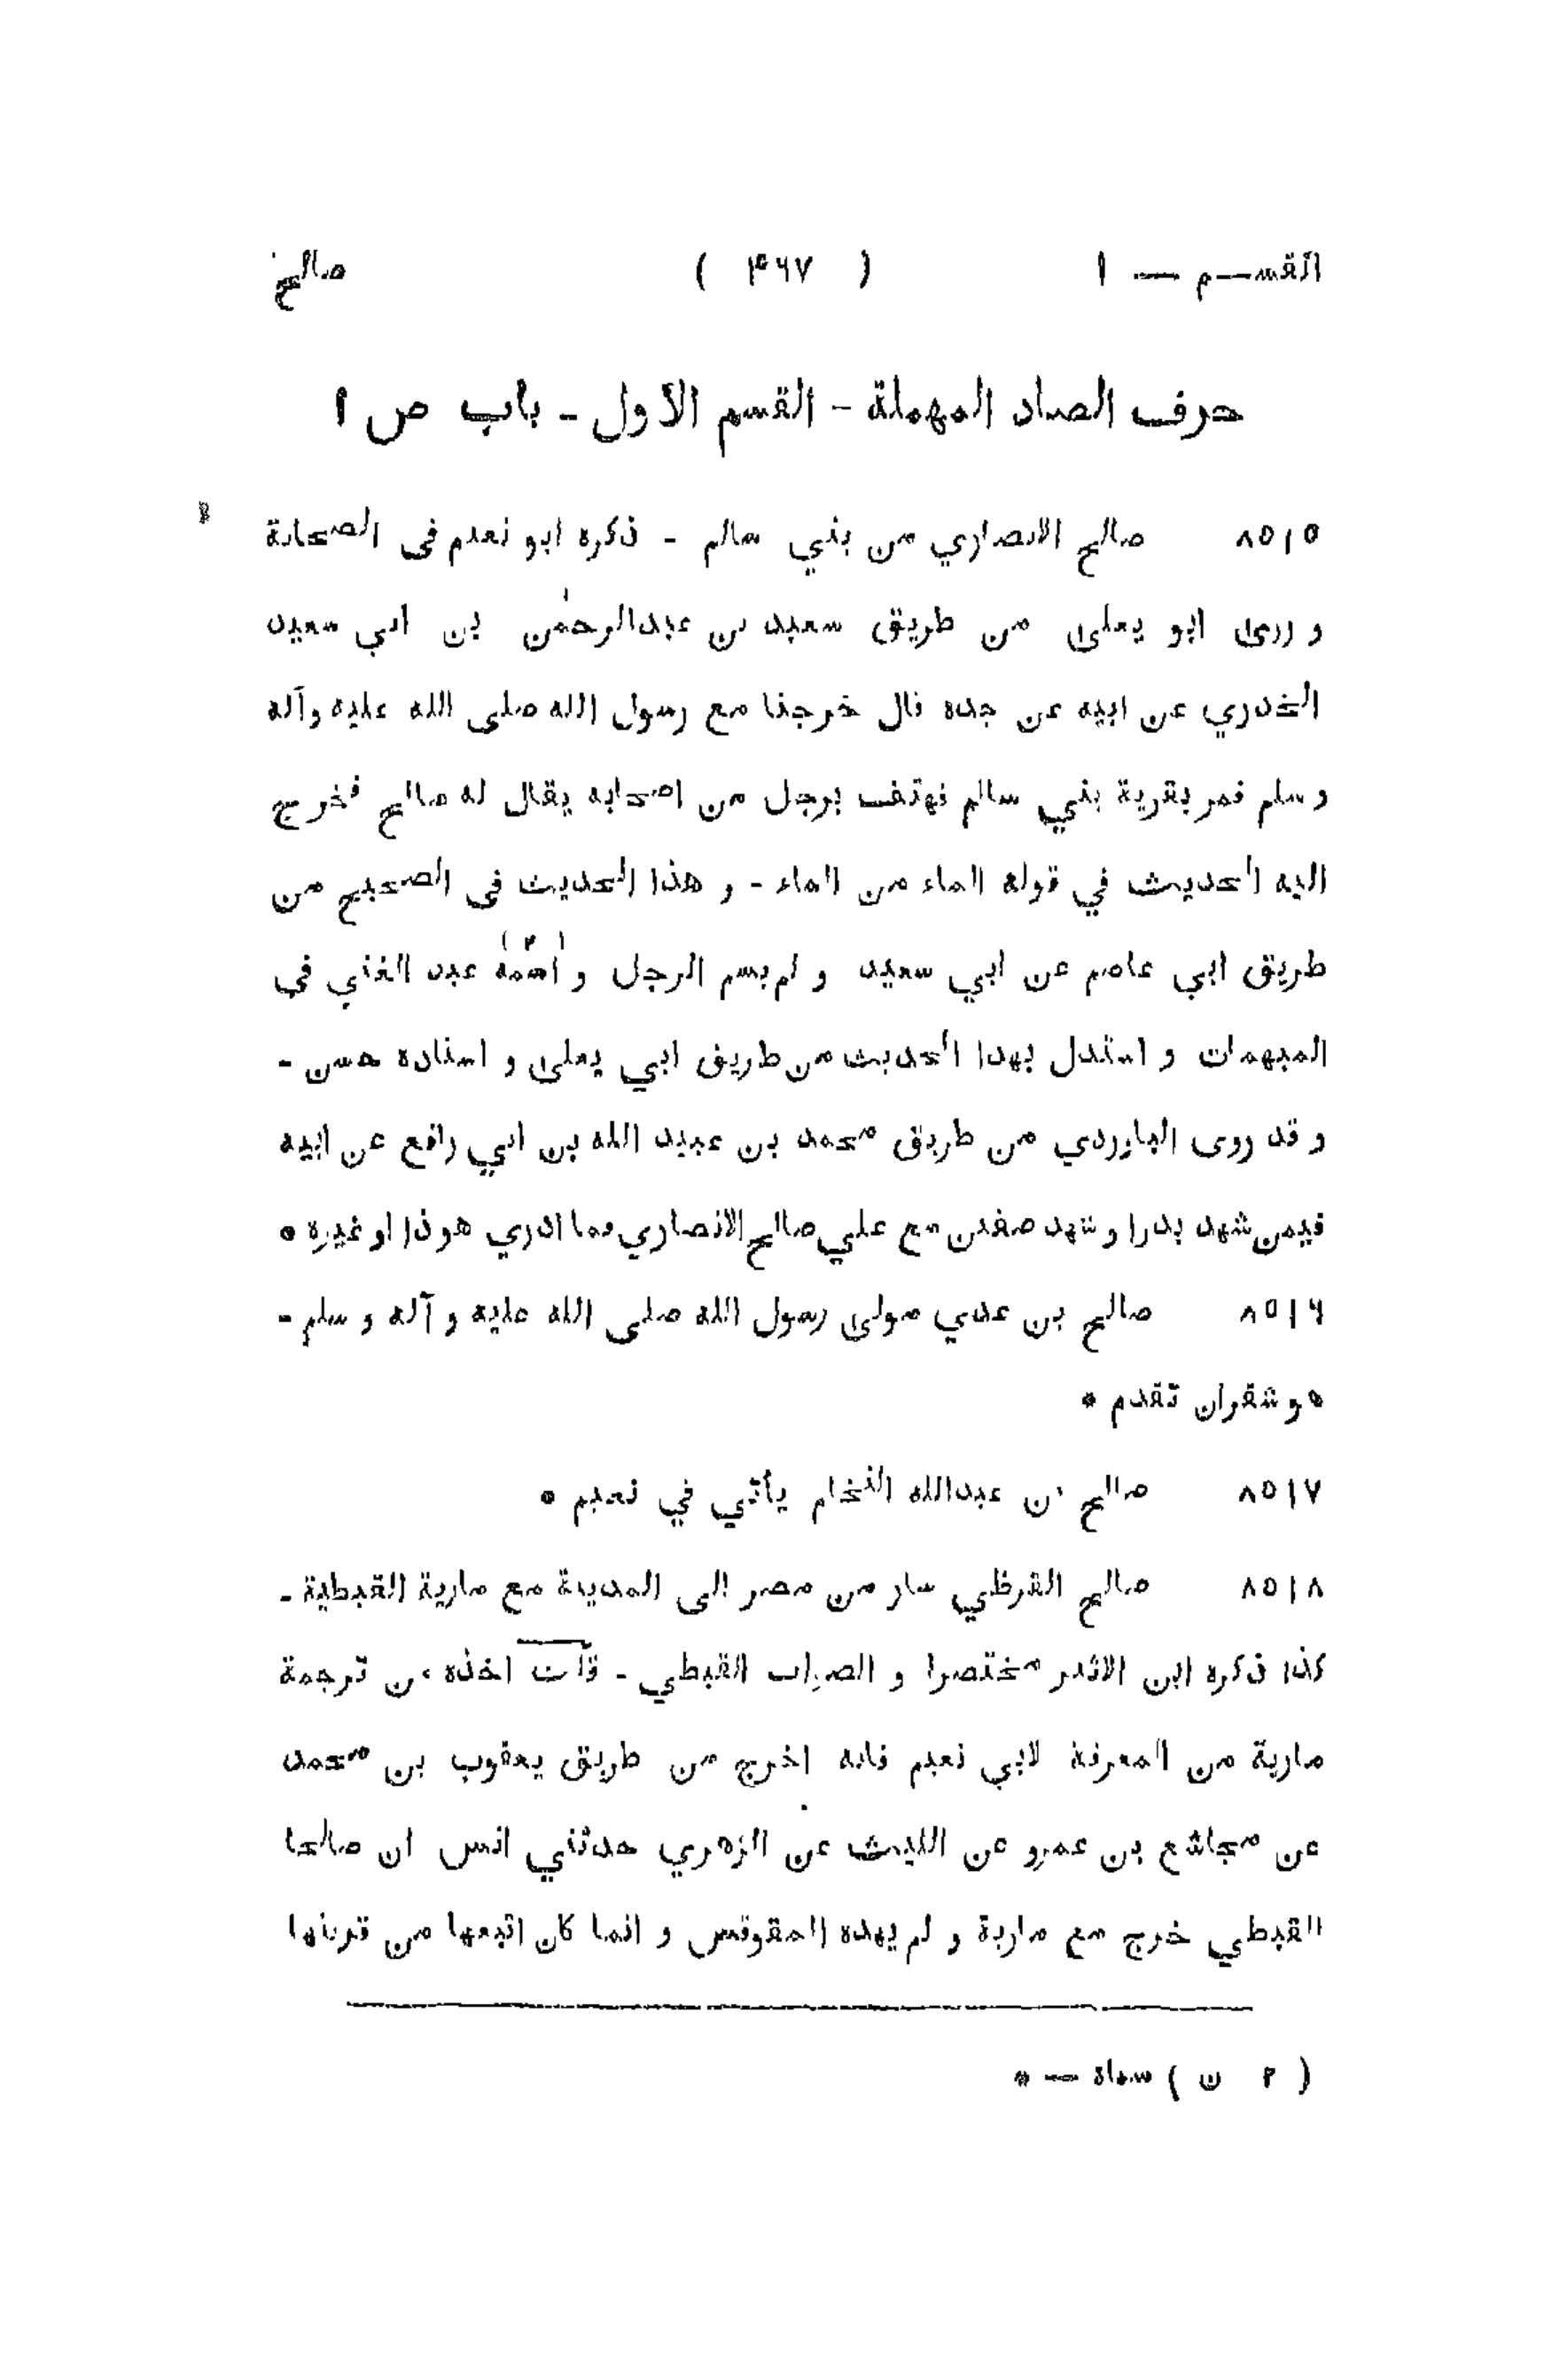 القسم — ١ ( ۴۶۷ ) صالح
حرف الصاد المهملة - القسم الأول - باب ص ا
٨٥١٥ صالح الانصاري من بني سالم - ذكره ابو نعيم في الصحابة
و روى ابو يعلى من طريق سعيد بن عبدالرحمٰن بن ابي سعيد
الخدري عن ابيه عن جده قال خرجنا مع رسول الله صلى الله عليه وآله
و سلم فمر بقرية بني سالم فهتف برجل من اصحابه يقال له صالح فخرج
اليه الحديث في قوله الماء من الماء - و هذا الحديث في الصحيح من
طريق ابي عاصم عن ابي سعيد و لم يسم الرجل و اسمه (٢) عبد الغني في
المبهمات و استدل بهذا الحديث من طريق ابي يعلى و اسناده حسن -
و قد روى الباوردي من طريق محمد بن عبيد الله بن ابي رافع عن ابيه
فيمن شهد بدرا و شهد صفين مع علي صالح الانصاري فما ادري هو ذا او غيره *
٨٥١۶ صالح بن عدي مولى رسول الله صلى الله عليه و آله و سلم -
هو شقران تقدم *
٨٥١٧ صالح بن عبدالله النخام يأتي في نعيم *
٨٥١٨ صالح القرظي سار من مصر الى المدينة مع مارية القبطية -
كذا ذكره ابن الاثير مختصرا و الصواب القبطي - قلت اخذه من ترجمة
مارية من المعرفة لابي نعيم فانه اخرج من طريق يعقوب بن محمد
عن مجاشع بن عمرو عن الليث عن الزهري حدثني انس ان صالحا
القبطي خرج مع مارية و لم يهده المقوقس و انما كان اتبعها من قريتها
( ٢ ن ) سماه — *